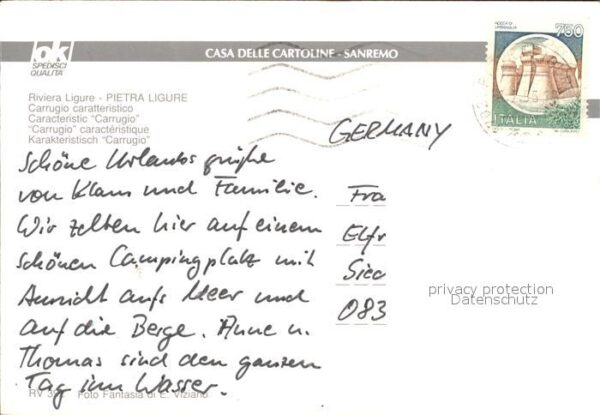 ok
SPEDISCI
QUALITA'
CASA DELLE CARTOLINE - SANREMO
Riviera Ligure - PIETRA LIGURE
Carrugio caratteristico
Caracteristic "Carrugio"
"Carrugio" caractéristique
Karakteristisch "Carrugio"
ROCCA DI
URBISAGLIA
750
ITALIA
GERMANY
Schöne Urlaubsgrüße
von Klaus und Familie.
Wir zelten hier auf einem
schönen Campingplatz mit
Aussicht aufs Meer und
auf die Berge. Anne u.
Thomas sind den ganzen
Tag im Wasser.
Fra
Elfr
Siec
083
privacy protection
Datenschutz
RV 39 Foto Fantasia di E. Viziano